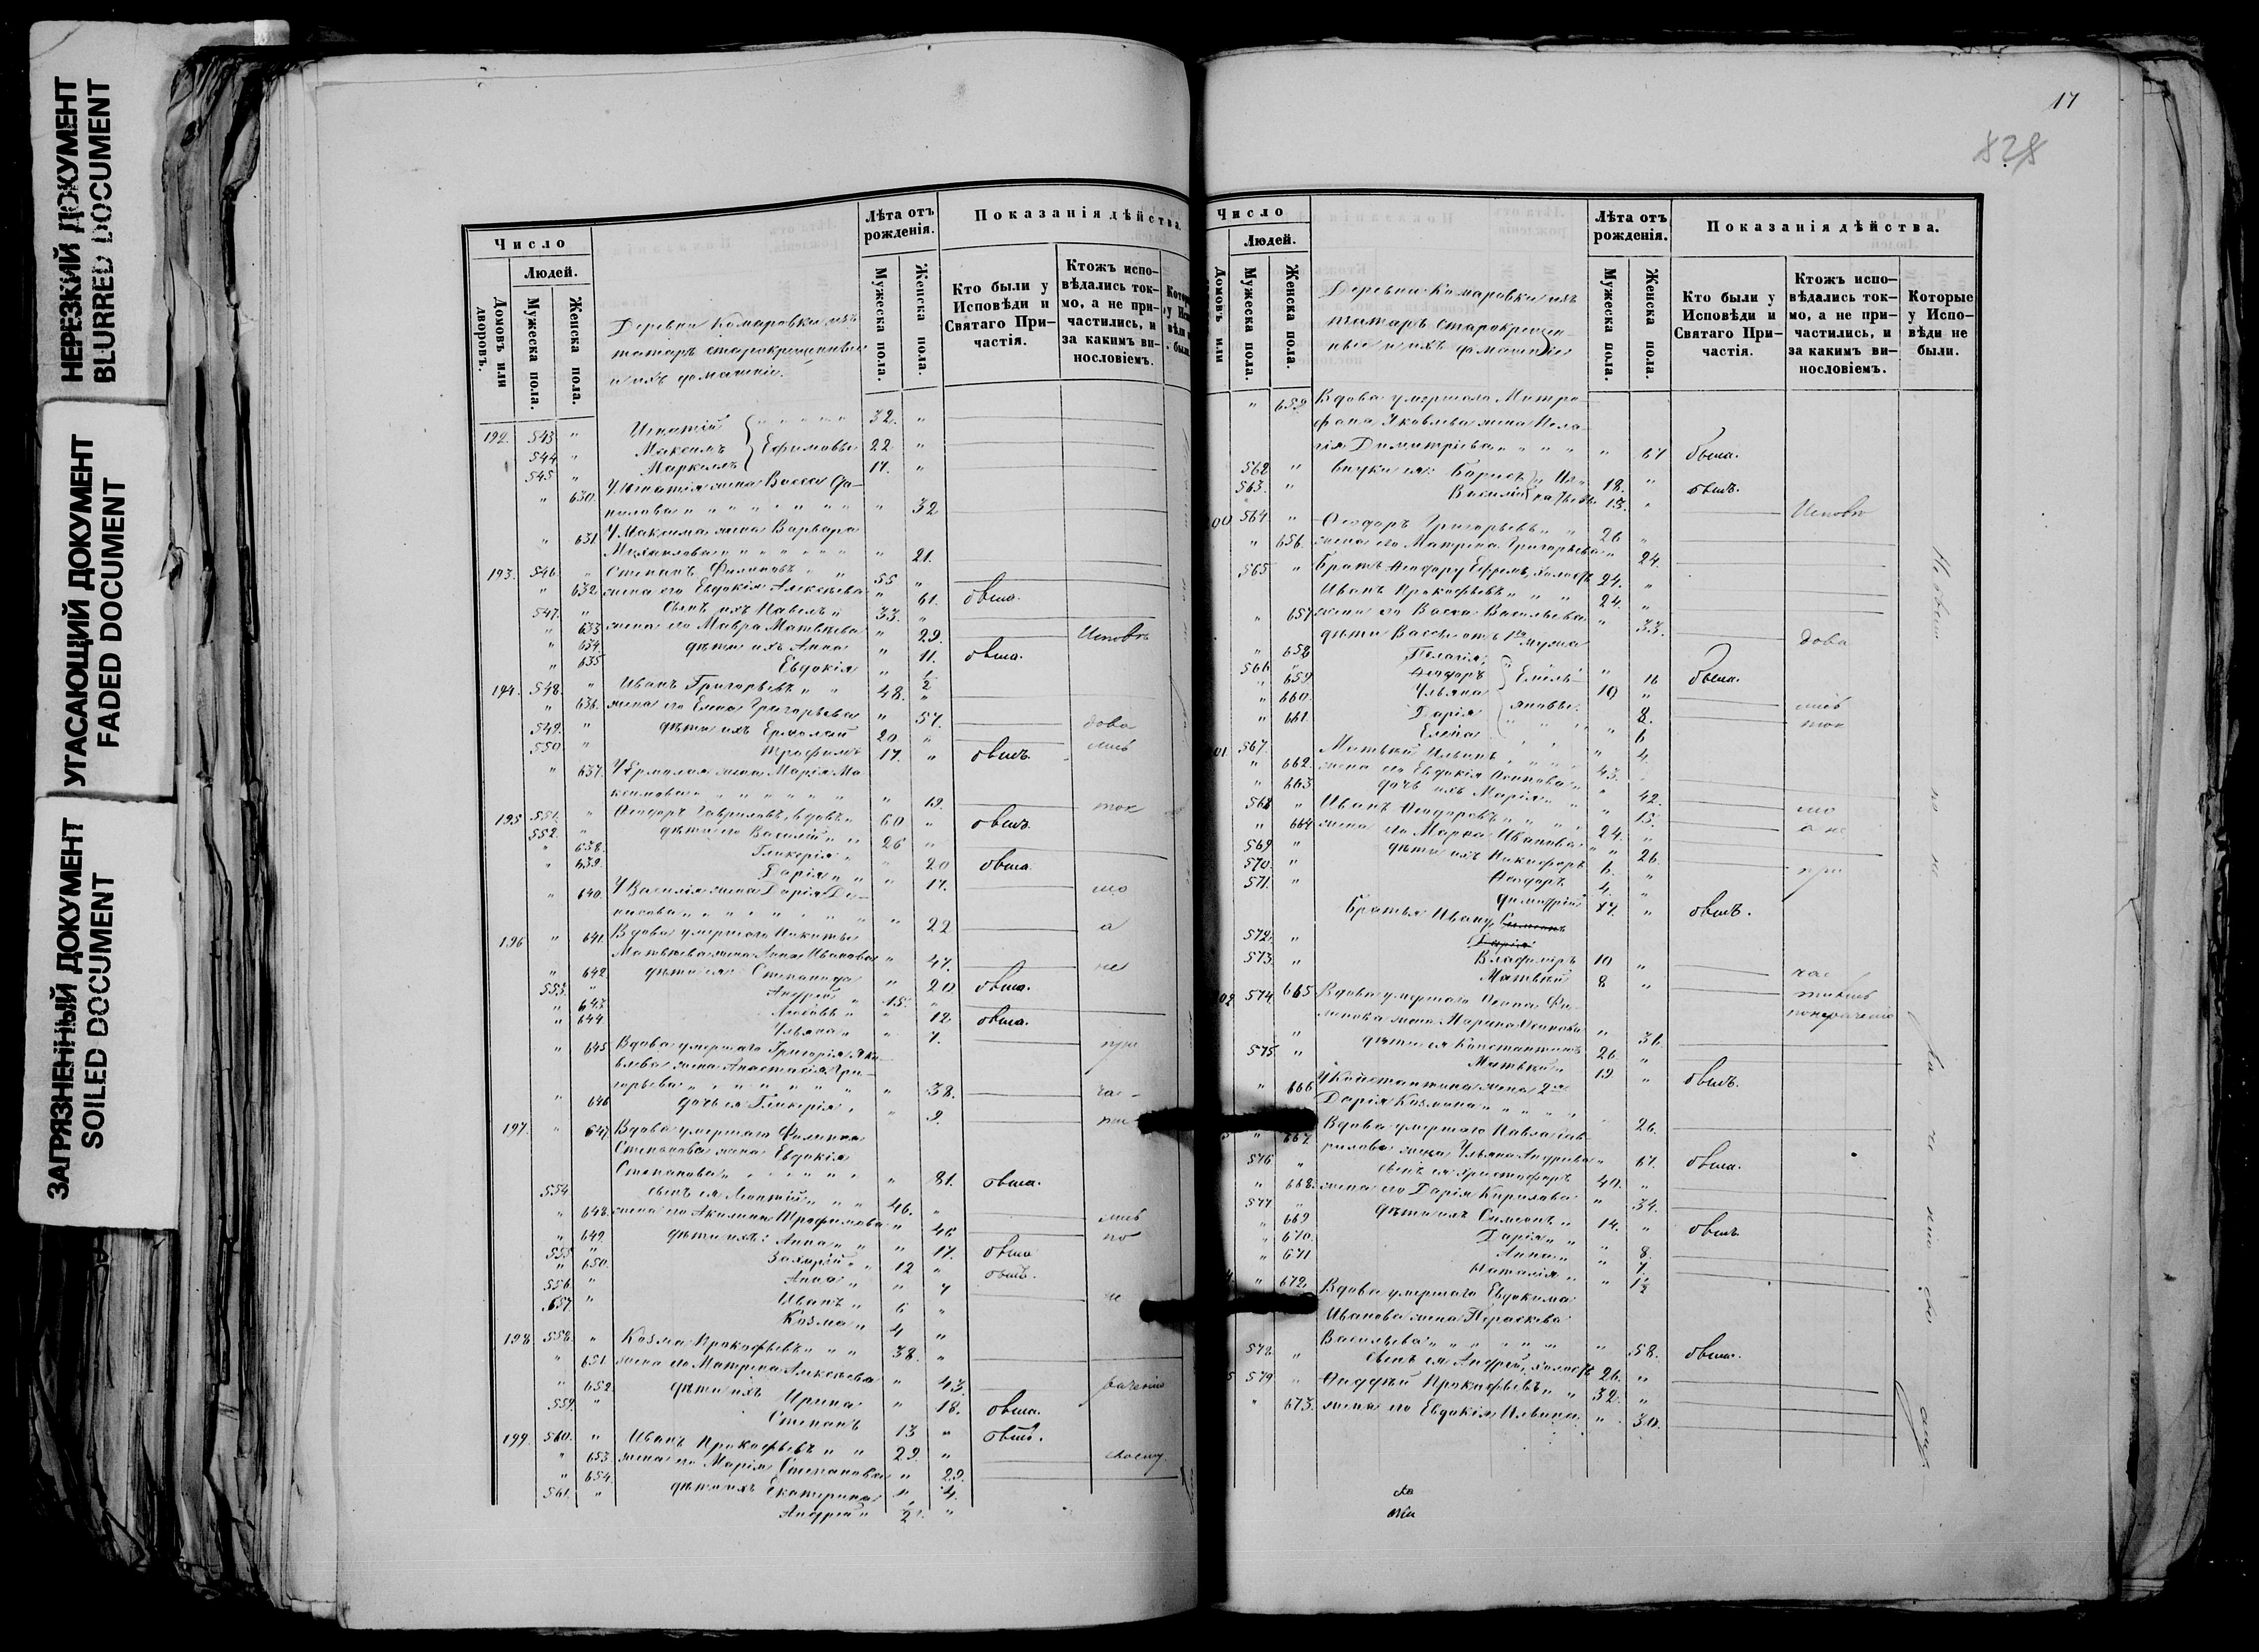 НЕРЕЗКИЙ ДОКУМЕНТ
BLURRED DOCUMENT
УГАСАЮЩИЙ ДОКУМЕНТ
FADED DOCUMENT
ЗАГРЯЗНЕННЫЙ ДОКУМЕНТ
SOILED DOCUMENT
Число
Людей.
Домовъ или дворовъ.
Мужеска пола.
Женска пола.
Деревни Комаровки изъ
татаръ старокрещенные
и ихъ домашніе.
Лѣта отъ рожденія.
Мужеска пола.
Женска пола.
Показанія дѣйства.
Кто были у Исповѣди и Святаго Причастія.
Ктожъ испо-
вѣдались ток-
мо, а не при-
частились, и
за какимъ ви-
нословіемъ.
192. 543 " Игнатій 32. "
544 " Максимъ } Ефимовы 22 "
545 " Маркелъ 17. "
" 630. У Игнатія жена Васса Да-
нилова " 32
" 631. У Максима жена Варвара
Михаилова " 21.
193. 546 " Степанъ Филиповъ 55 "
" 632 жена его Евдокія Алексѣева " 61. была.
547. " сынъ ихъ Павелъ 33. "
" 633 жена его Мавра Матвѣева " 29. Исповѣ
" 634. дѣти ихъ Анна " 11. была.
" 635 Евдокія " 1/2
194. 548. " Иванъ Григорьевъ 48. "
" 636. жена его Елена Григорьева " 57. дова
549. " дѣти ихъ Ермолай 20 " лись
550 " Трофимъ 17. " былъ.
" 637. У Ермолая жена Марія Ма
ксимова " 19. ток
195 551. " Ѳеодоръ Гавриловъ, вдовъ 60 " былъ.
552. " дѣти его Василій 26 "
" 638. Гликерія " 20 была.
" 639. Дарія " 17.
" 640. У Василія жена Дарія Де-
нисова " 22 мо
196 " 641. Вдова умершаго Никиты а
Матвѣева жена Анна Иванова " 47.
" 642 дѣти ея Степанида " 20 была. не
553. " Андрей 15. "
" 643 Любовь " 12 была.
" 644 Ульяна " 7.
" 645 Вдова умершаго Григорія Яко
влева жена Анастасія Гри-
горьева " 38. при
" 646 дочь ея Гликерія " 9. час-
197. " 647 Вдова умершаго Филиппа
Степанова жена Евдокія
Степанова " 81. была.
554 сынъ ея Леонтій 46. "
" 648. жена его Акилина Трофимова " 46 лись
" 649 дѣти ихъ: Анна " 17. была по
555 " Захарій 12 " былъ.
" 650. Анна " 7
556 " Иванъ 6 " не
557 " Козма 4 "
198 558. " Козма Прокофьевъ 38. "
" 651 жена его Матрена Алексѣева " 43.
" 652. дѣти ихъ Ирина " 18. была. раченію
559. " Степанъ 13 " былъ.
199 560. " Иванъ Прокофьевъ 29. "
" 653. жена его Марія Степанова " 29. своему
" 654. дѣти ихъ Екатерина " 4.
561. " Андрей 1/2 "
17
828
Число
Людей.
Домовъ или
Мужеска пола.
Женска пола.
Деревни Комаровки изъ
татаръ старокрещен-
ные и ихъ домашніе
Лѣта отъ рожденія.
Мужеска пола.
Женска пола.
Показанія дѣйства.
Кто были у Исповѣди и Святаго Причастія.
Ктожъ испо-
вѣдались ток-
мо, а не при-
частились, и
за какимъ ви-
нословіемъ.
Которые у Испо-
вѣди не были.
" 655 Вдова умершаго Митро-
фана Яковлева жена Пела-
гія Димитріева " 67 была.
562 " внуки ея: Борисъ 18. " былъ.
563. " Василій 13. "
00 564. " Ѳеодоръ Григорьевъ 26 " Исповѣ
" 656. жена его Матрена Григорьева " 24.
565 " Братъ Ѳеодору Ефремъ, холостъ 24. "
Иванъ Прокофьевъ 24. "
" 657 жена его Васса Васильева " 33.
дѣти Вассы отъ 1го мужа дова
" 658 Пелагія " 16 была.
566 " Ѳеодоръ } Емель- 10 "
" 659 Ульяна яновы " 8. лись
" 660. Дарія " 6 ток
" 661 Елена " 4.
01. 567. Матвѣй Ильинъ 43. "
" 662. жена его Евдокія Осипова " 42.
" 663 дочь ихъ Марія " 15. мо
568 " Иванъ Ѳеодоровъ 24. " а не
" 664 жена его Марѳа Иванова " 26.
569 " дѣти ихъ Никифоръ 6. " при
570. " Ѳеодоръ 4. "
571. " Братья Ивану, Димитрій 17. " былъ.
572. " Владиміръ 10 "
573. " Матвѣй 8 " час
02 574. 665 Вдова умершаго Осипа Фи- тились
липова жена Марина Осипова " 31. по нераченію
" дѣти ея Константинъ 26 "
575 " Матвѣй 19 " былъ.
" 666 У Константина жена 2я
Дарія Козмина " 26.
" 667. Вдова умершаго Павла Гав-
рилова жена Ульяна Андреева " 67. была.
576 " сынъ ея Христофоръ 40. "
" 668. жена его Дарія Кирилова " 34.
577 " дѣти ихъ Симеонъ 14. " былъ
" 669 Дарія " 8.
" 670. Анна " 7.
" 671 Наталія " 1 1/2
" 672 Вдова умершаго Евдокима
Иванова жена Параскева
Васильева " 58. была.
578. " сынъ ея Андрей, холостъ 26. "
5 579 " Ѳаддѣй Прокофьевъ 32. "
" 673. жена его Евдокія Ильина " 30.